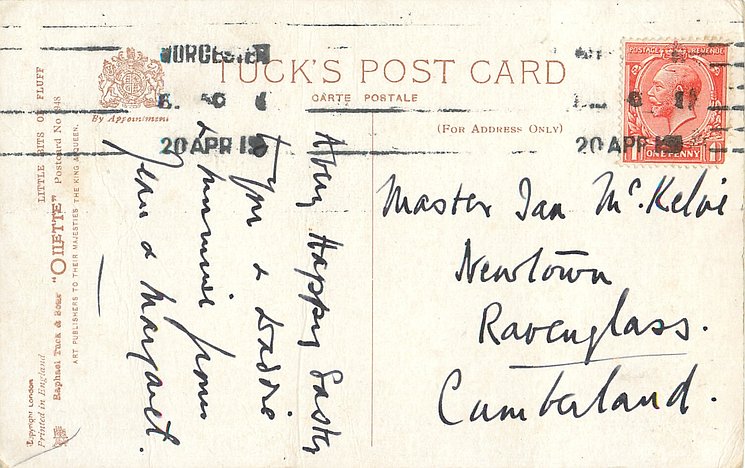 WORCESTER
20 APR 19
20 APR 19
POSTAGE REVENUE
1 ONE PENNY 1
TUCK'S POST CARD
CARTE POSTALE
(FOR ADDRESS ONLY)
By Appointment
LITTLE BITS OF FLUFF
"OILETTE" Postcard No
Raphael Tuck & Sons'
ART PUBLISHERS TO THEIR MAJESTIES THE KING & QUEEN.
Copyright London
Printed in England
A very Happy Easter
to you & Daddie
& mummie from
Jean & Margaret.
Master Ian McKelvie
Newtown
Ravenglass.
Cumberland.